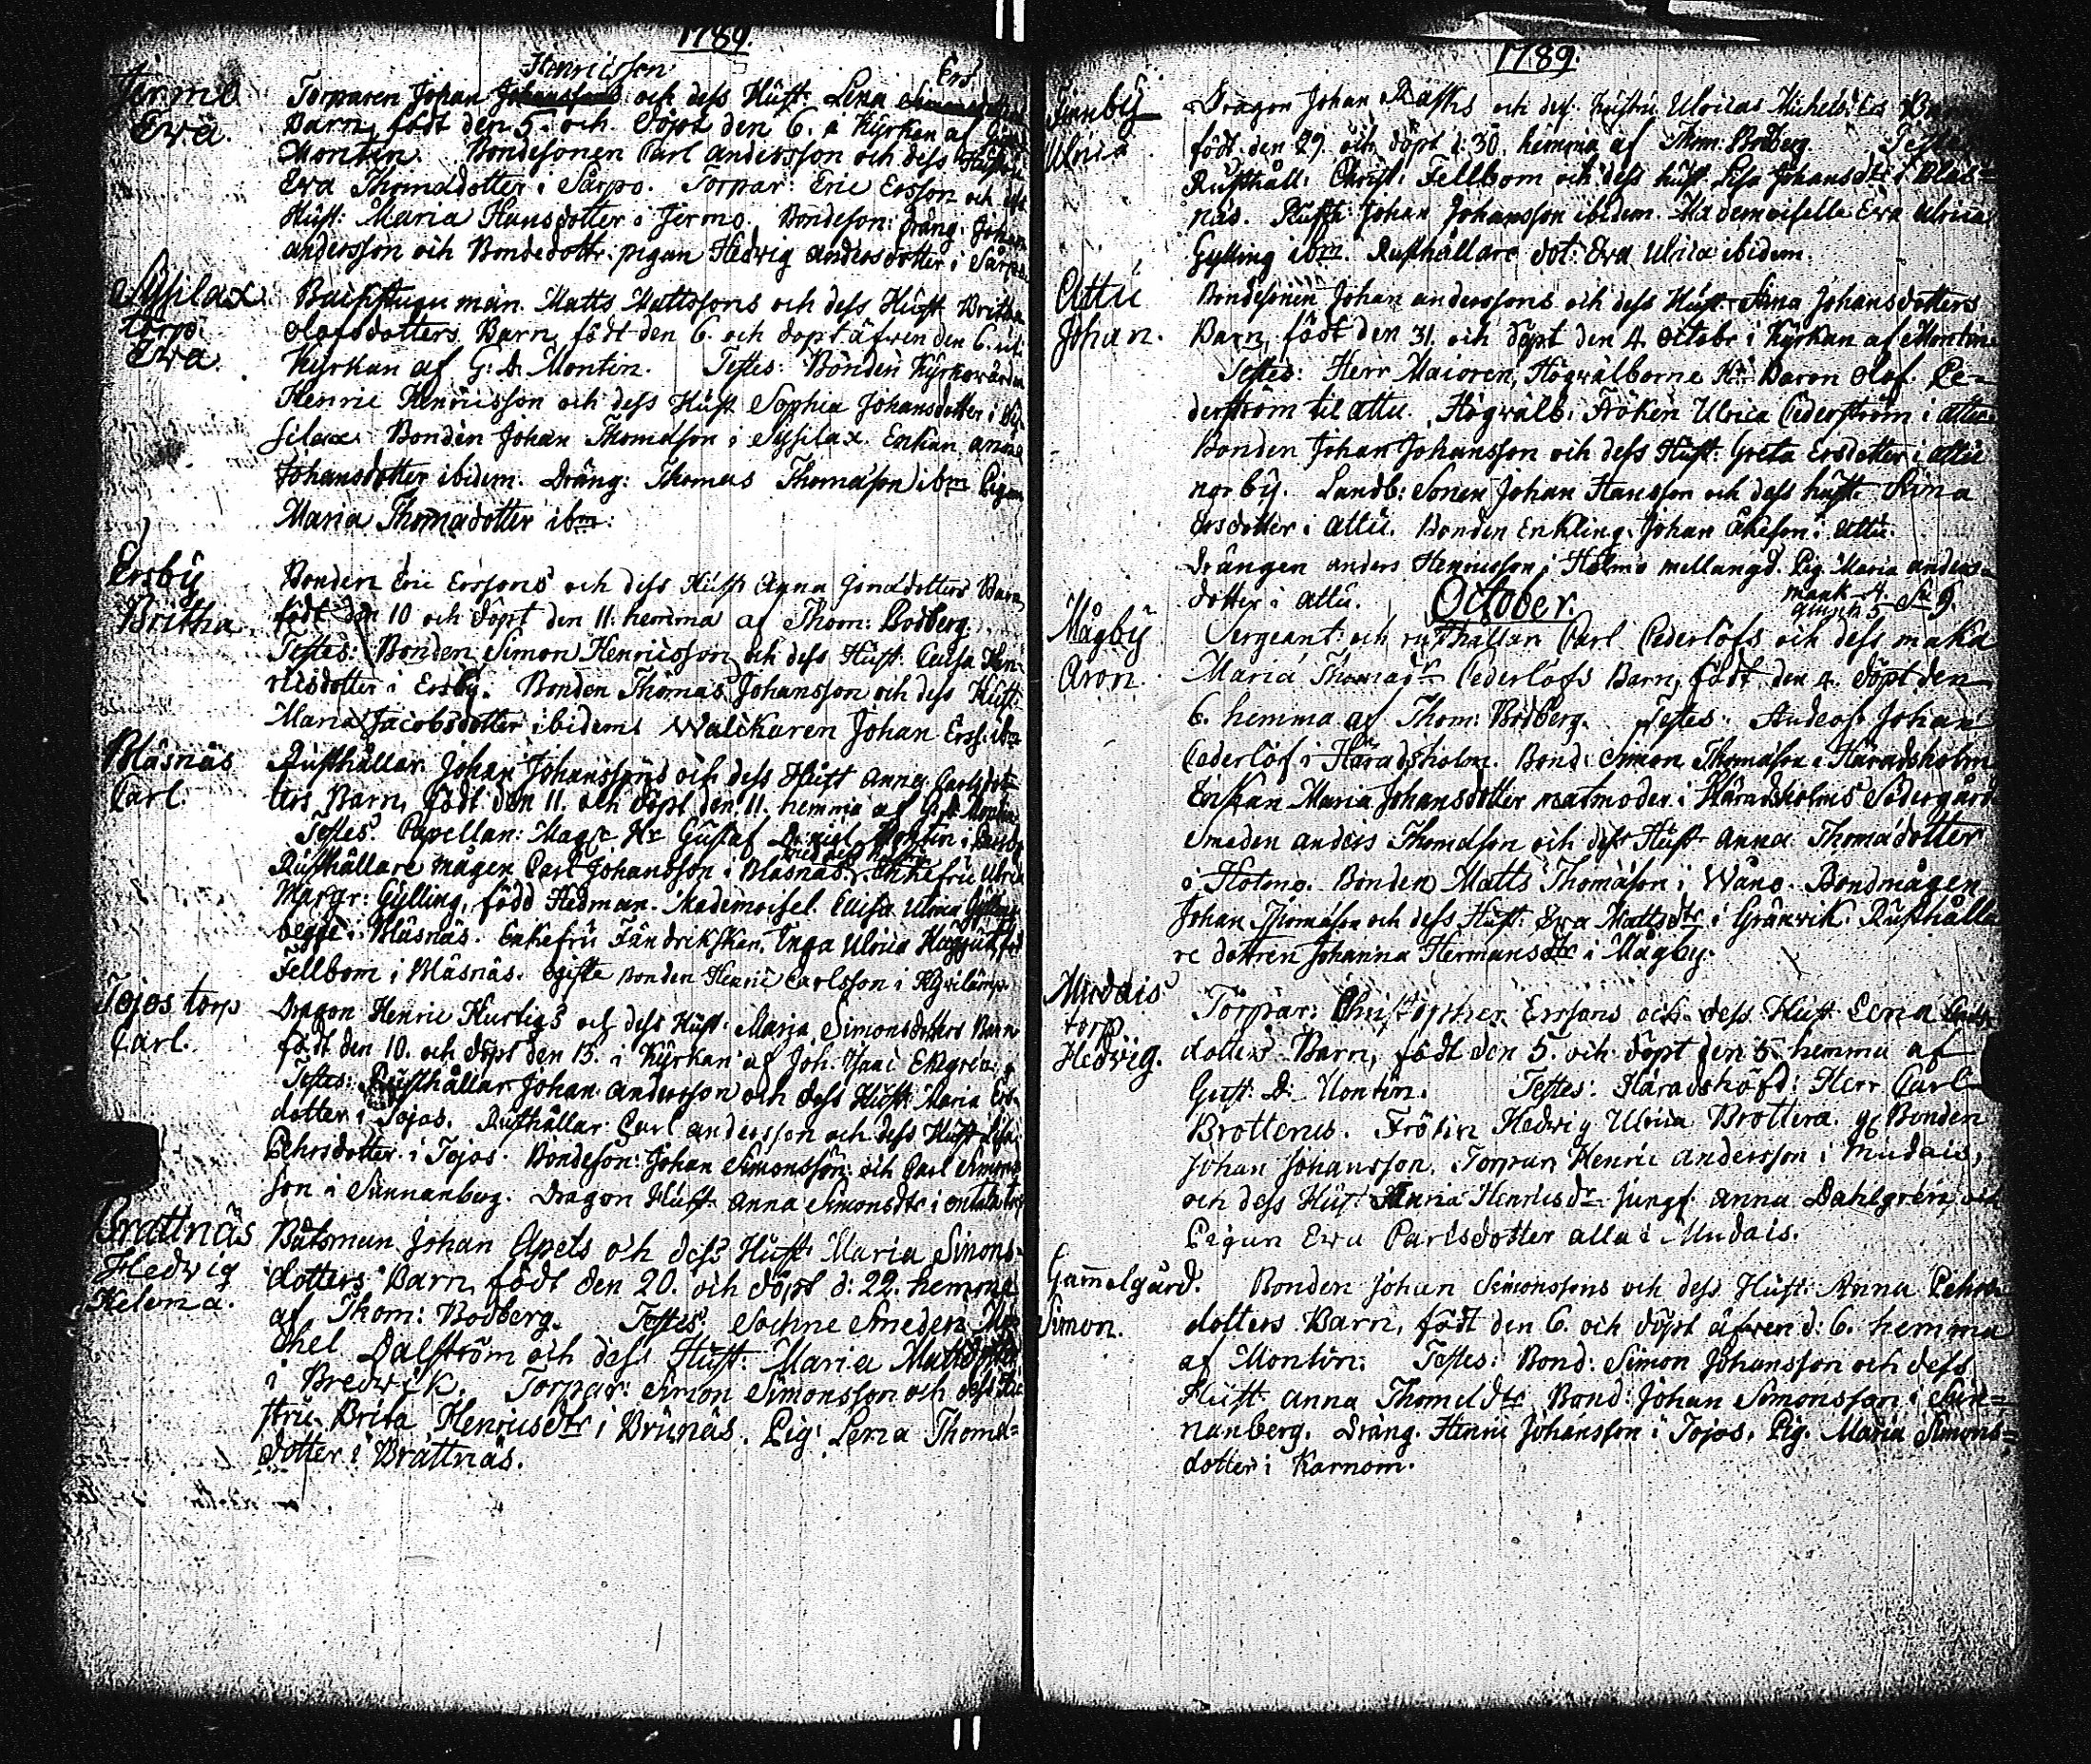 1789.
Henricsson Ers
Jermo Torparen Johan Johansson och dess Hust: Lena
Ewa. Barn, födt den 5. och döpt den 6. i Kyrkan af
Montin. Bondesonen Carl andersson och dess Hustru
Ewa Thomadotter i Särpo. Torpar: Eric Ersson och dess
Hust: Maria Hansdotter i Jermo. Bondeson: dräng: Johan
andersson och Bondedottr. pigan Hedvig andersdotter i Särpo.
Sysilax Backstugu man Matts Mattssons och dess Hust Britha
torp. Olofsdotters Barn, födt den 6. och döpt äfven den 6. uti
Ewa. Kyrkan af G: D: Montin. Testes: Bonden Kyrkowärden
Henric Henricsson och dess Hust Sophia Johansdotter i Sy-
silax. Bonden Johan Thomasson i Sysilax. Enkan anna
Johansdotter ibidem. Dräng: Thomas Thomasson ibm Pigan
Maria Thomadotter ibm:
Ersby Bonden Eric Erssons och dess Hust Agna Jonadotters Barn
Britha. födt den 10 och döpt den 11. hemma af Thom: Bodberg.
Testes: Bonden Simon Henricsson och dess Hust. Caisa Hen-
ricsdotter i Ersby. Bonden Thomas Johansson och dess Hust
Maria Jacobsdotter ibidem. Walackaren Johan Erss. ibm
Bläsnäs Rusthållar: Johan Johanssons och dess Hust Anna Carlsdot-
Carl. ters Barn, födt den 11. och döpt den 11. hemma af G: D: Montin
Testes: Capellan: Mag: Hr Gustaf Daniel Montin i
Rusthållare mågen Carl Johansson i Bläsnäs. Enkefru Ulrica
Margr: Gylling, född Hedman. Mademoisel. Caisa Ulrica Gylling
begge i Bläsnäs. Enkefru Fändrikskan Inga Ulrica
Fellbom i Bläsnäs. ogifte Bonden Henric Carlsson i
Tojos torp Dragon Henric Hurtigs och dess Hust. Maria Simonsdotters Barn
Carl. födt den 10. och döpt den 13. i Kyrkan af Joh. Isaac Ekegren:
Testes: Rusthållar Johan andersson och dess Hust: Maria Ers-
dotter i Tojos. Rusthållar Carl andersson och dess Hust Lisa
Pehrsdotter i Tojos. Bondeson: Johan Simonsson och Carl Simons-
son i Sunnanberg. Dragon Hust. Anna Simonsdtr i
Brattnäs Båtsman Johan Apets och dess Hust: Maria Simons-
Hedvig dotters Barn, födt den 20. och döpt d: 22. hemma
Helena. af Thom: Bodberg. Testes. Sochne Smeden Mi-
chel Dalström och dess Hust: Maria Mattsdotter
i Bredvik. Torpar: Simon Simonsson och dess Hu-
stru Brita Henricsdtr i Brunäs. Pig: Lena Thoma-
dotter i Brattnäs.
1789.
Finnby Dragon Johan Rasks och dess hustru Ulricas Michelsd.
Ulrica födt den 29. och döpt d: 30. hemma af Thom: Bodberg. Testes
Rusthåll: Christ: Fellbom och dess hust. Lisa Johansdtr i Bläs-
näs. Rusth: Johan Johansson ibidem. Mademoiselle Ewa Ulrica
Gylling ibm. Rusthållare dot: Ewa Ulrica ibidem.
Attu Bondesonen Johan anderssons och dess Hust. Anna Johansdotters
Johan. Barn, födt den 31. och döpt den 4. octobr i Kyrkan af Montin.
Testes: Herr Maioren, Högwälborne Hr Baron Olof Ce-
derström til attu. Högwälb: Fröken Ulrica Cederström i attu.
Bonden Johan Johansson och dess Hust. Greta Ersdotter i attu
norby. Landb: Sonen Johan Hansson och dess hust: Stina
Ersdotter i attu. Bonden Enkling: Johan Åkeson i attu.
Drängen anders Henricsson i Holmo mellangd. Pig. Maria anders-
dotter i attu. October. mank 4. quink 5. Sa 9.
Mågby Sergeant: och rusthållan Carl Cederlöfs och dess maka
Aron. Maria Thomadr Cederlöfs Barn, födt den 4. döpt den
6. hemma af Thom: Bodberg. Testes. Studios: Johan
Cederlöf i Häradsholm. Bond: Simon Thomasson i Häradsholm
Enkan Maria Johansdotter matmoder i Häradsholms Södergård
Smeden anders Thomasson och dess Hust anna Thomadotter
i Holmo. Bonden Matts Thomasson i Wäno. Bondmågen
Johan Thomasson och dess Hust. Ewa Mattsdtr i Granvik. Rusthålla
re dottren Johanna Hermansdtr i Mågby.
Mudais Torpar: Christopher Erssons och dess Hust Lena
torp. dotters Barn, födt den 5. och döpt den 5. hemma af
Hedvig. Gust: D: Montin. Testes: Häradshöfd: Herr Carl
Brotterus. Frökin Hedvig Ulrica Brottera. Bonden
Johan Johansson. Torpar Henric andersson i Mudais,
och dess Hust Maria Henricsdr. Jungf. anna Dahlgren, och
Pigan Ewa Carlsdotter alla i Mudais.
Gammelgård. Bonden Johan Simonssons och dess Hust. Anna Pehrs-
Simon. dotters Barn, födt den 6. och döpt äfven d: 6. hemma
af Montin: Testes: Bond: Simon Johansson och dess
Hust anna Thomasdtr. Bond: Johan Simonsson i Sun-
nanberg. Dräng. Henric Johansson i Tojos. Pig. Maria Simons-
dotter i Karnom.